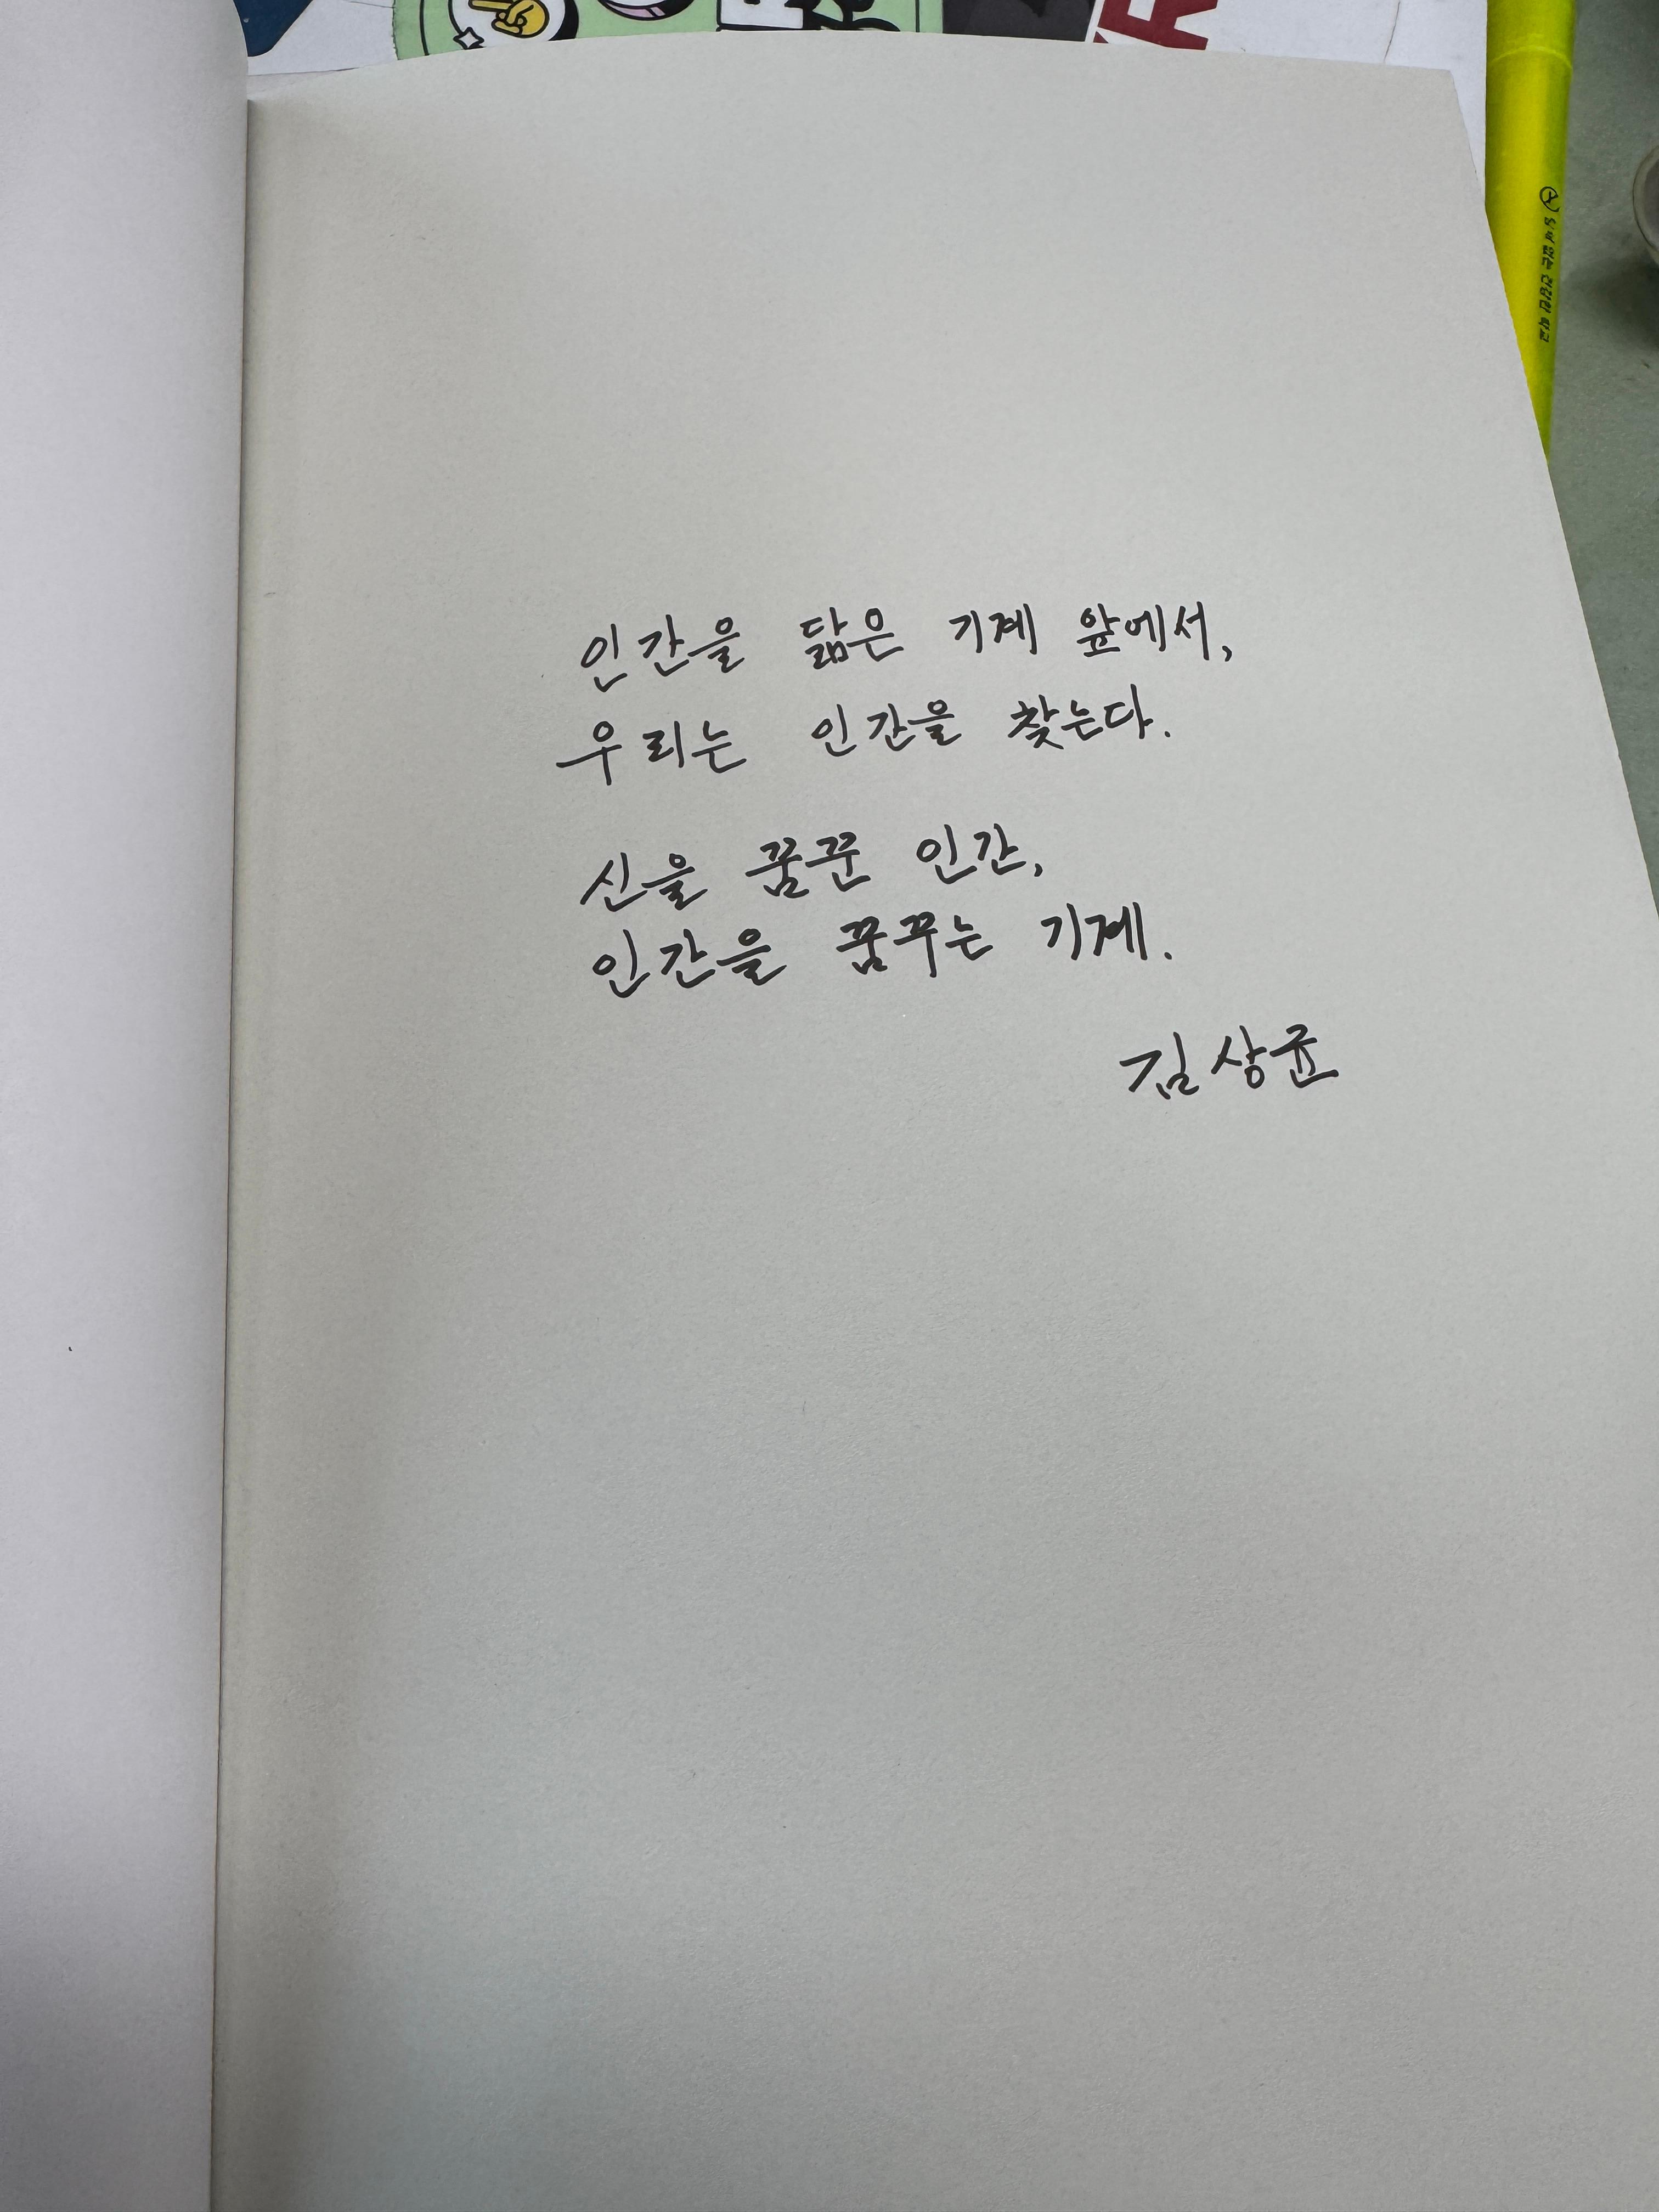 인간을 닮은 기계 앞에서,
우리는 인간을 찾는다.
신을 꿈꾼 인간,
인간을 꿈꾸는 기계.
김상균